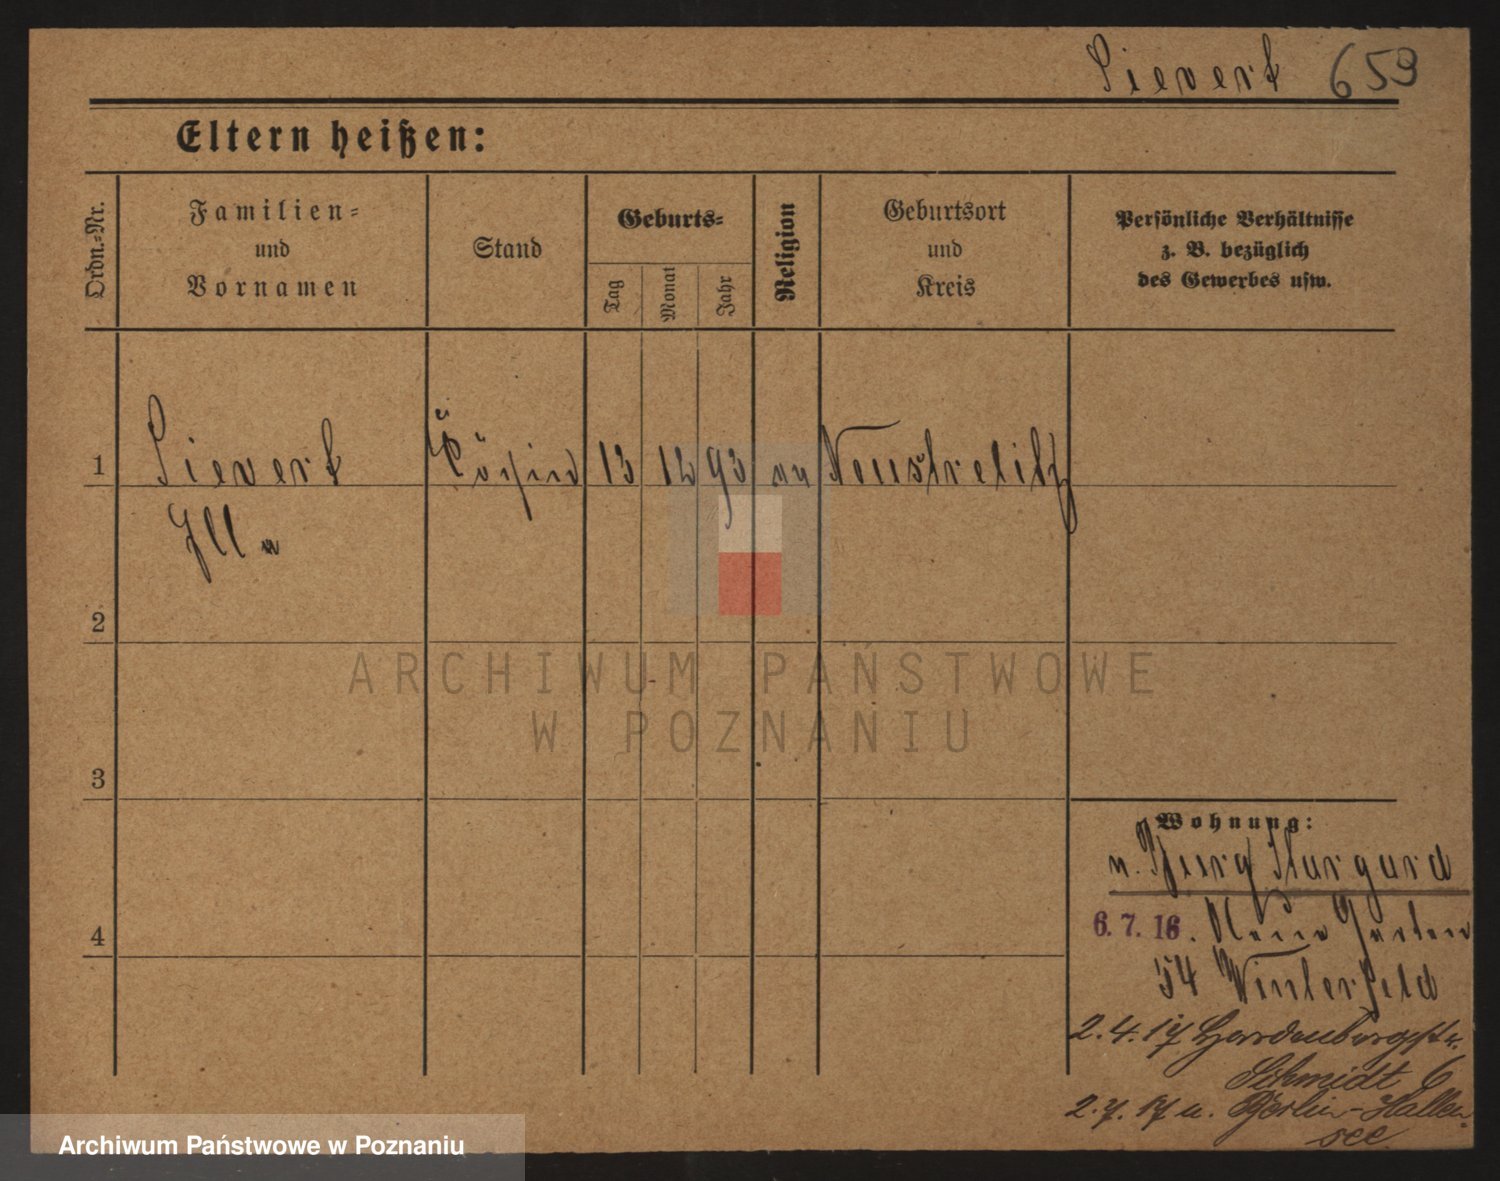 Sievert 659
Eltern heißen:
Ordn.-Nr.
Familien-
und
Vornamen
Stand
Geburts-
Tag
Monat
Jahr
Religion
Geburtsort
und
Kreis
Persönliche Verhältnisse
z. B. bezüglich
des Gewerbes usw.
1 Sievert 13 12 93 Neustrelitz
2
3
4
ARCHIWUM PAŃSTWOWE
W POZNANIU
Wohnung:
n. Stargard
6. 7. 16. Neue Garten
54 Winterfeld
2.4.17 Hardenbergstr.
Schmidt 6
2.7.17 n. Berlin-Hallen-
see
Archiwum Państwowe w Poznaniu